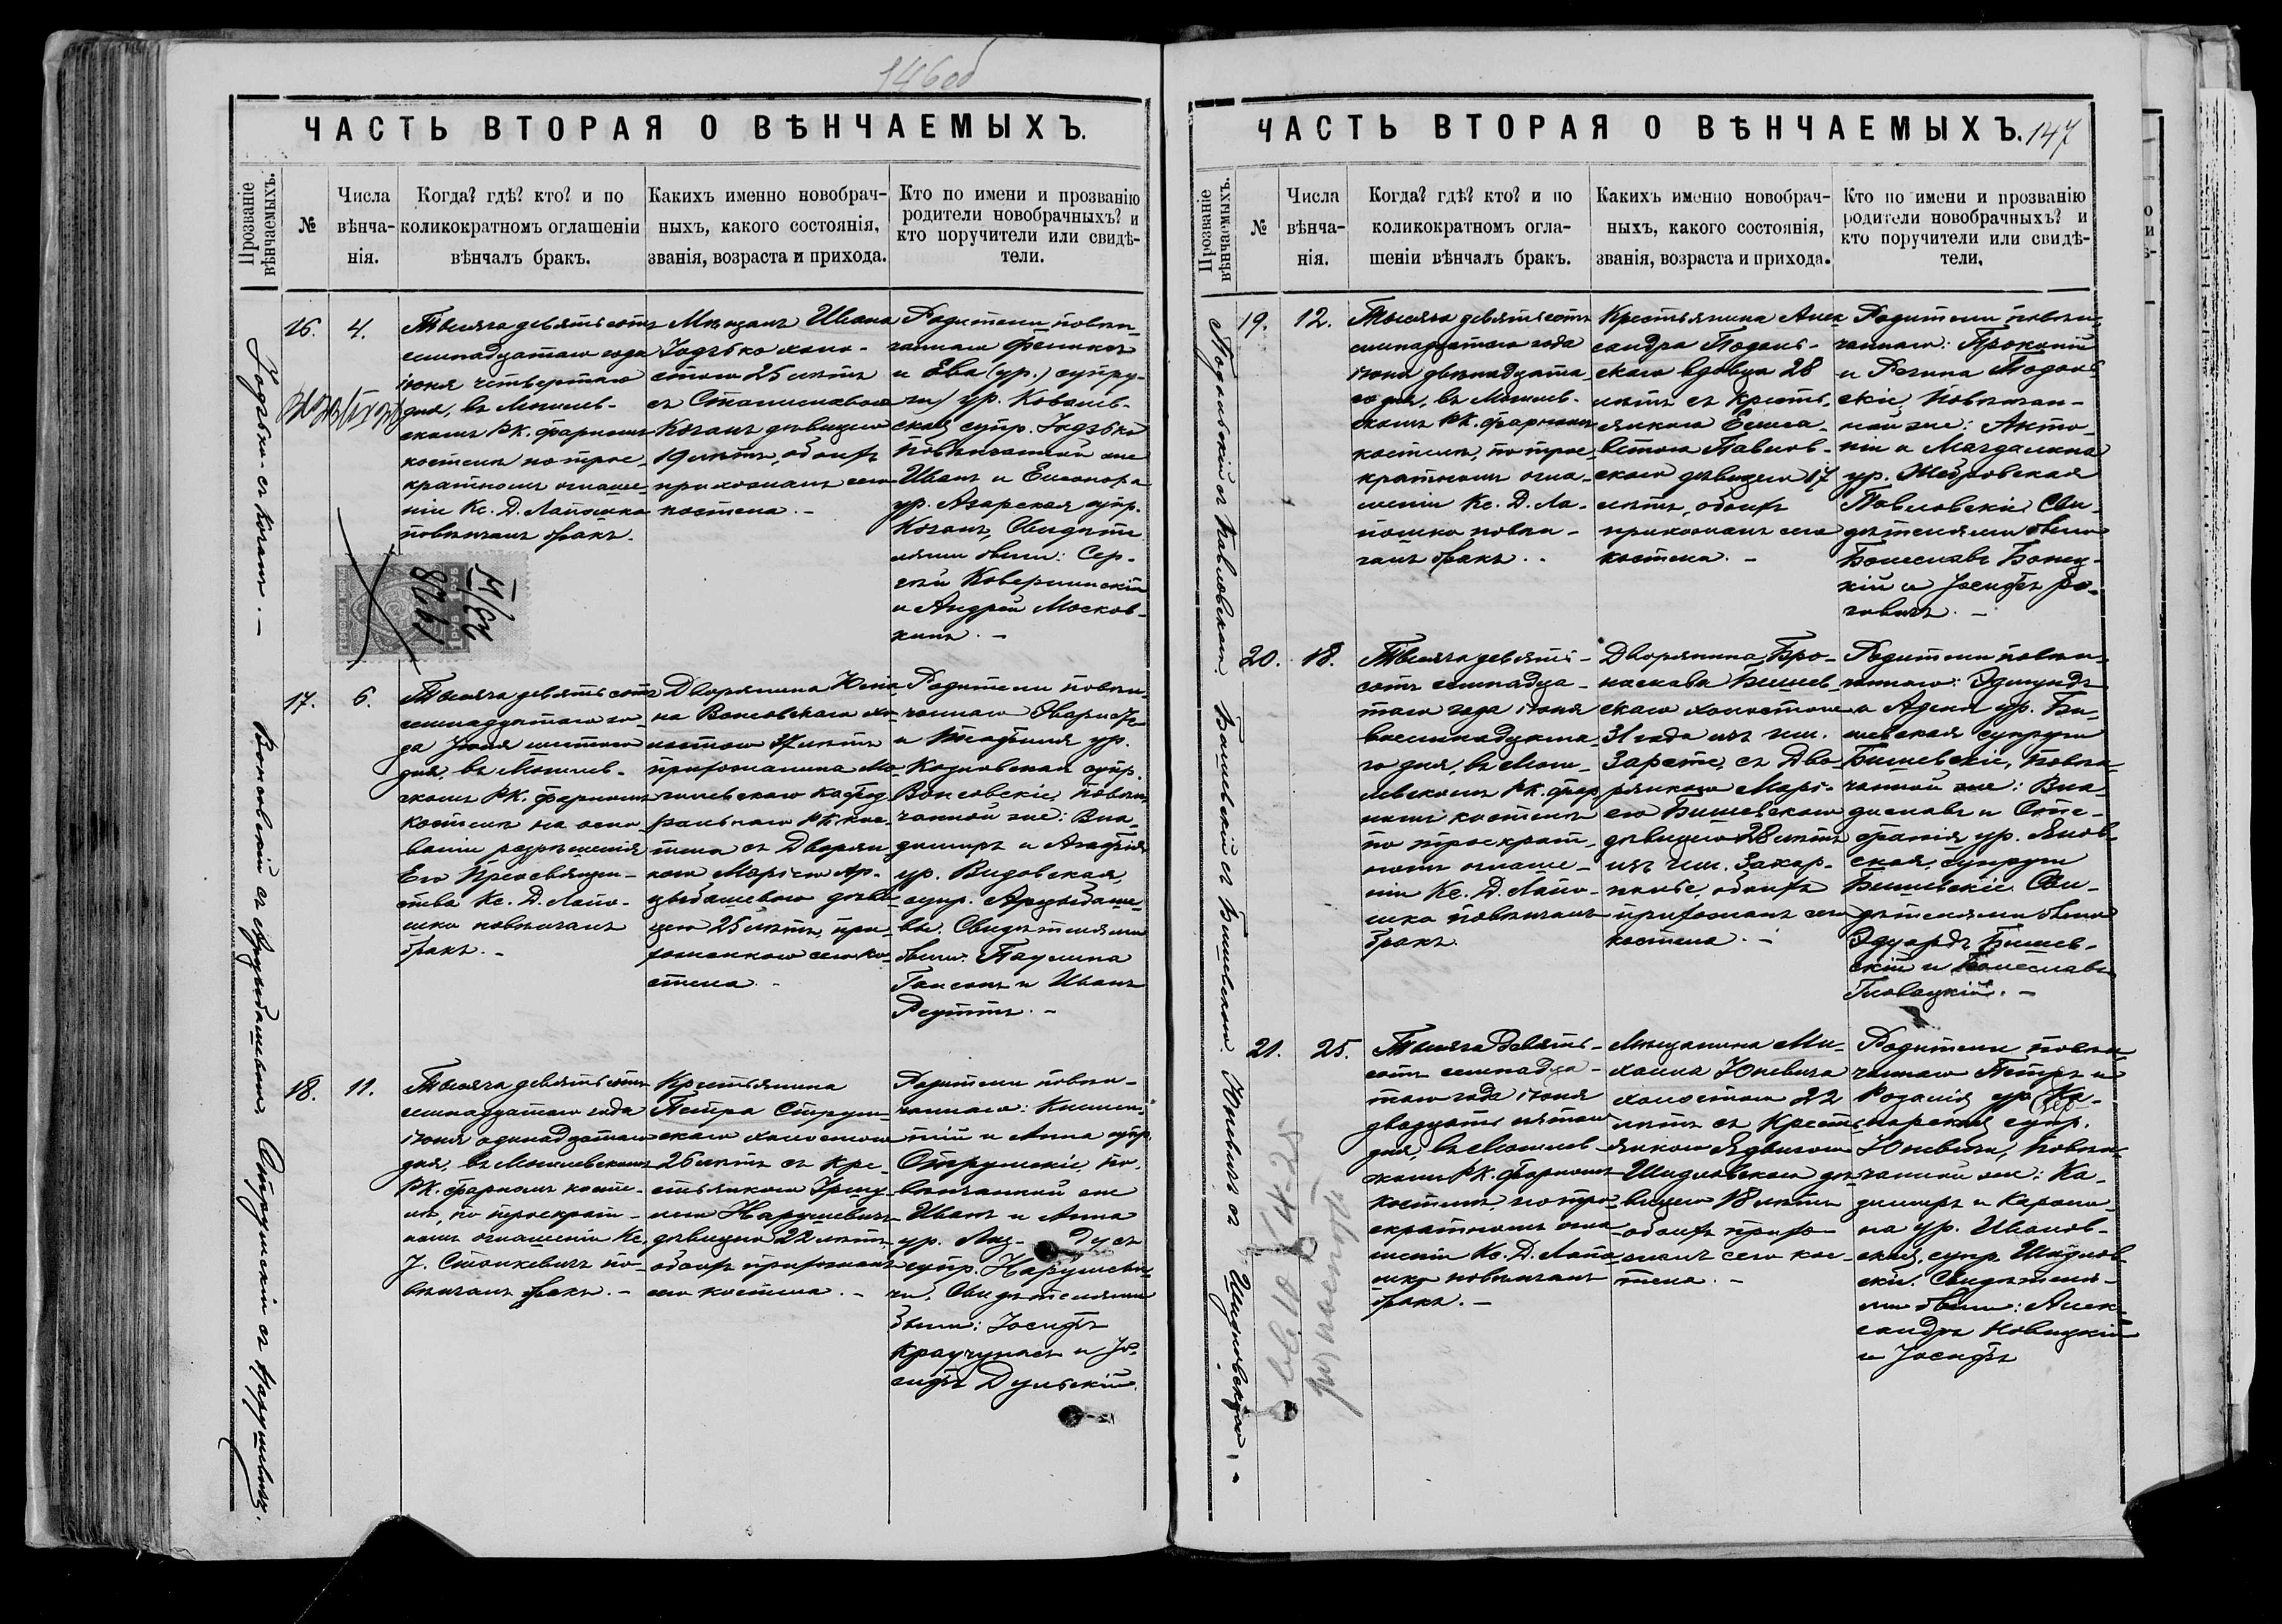 146об
ЧАСТЬ ВТОРАЯ О ВѢНЧАЕМЫХЪ.
Прозваніе вѣнчаемыхъ.
№
Числа вѣнча-нія.
Когда? гдѣ? кто? и по коликократномъ оглашеніи вѣнчалъ бракъ.
Какихъ именно новобрач-ныхъ, какого состоянія, званія, возраста и прихода.
Кто по имени и прозванію родители новобрачныхъ? и кто поручители или свидѣ-тели.
16.
4.
Тысяча девятьсотъ
семнадцатаго года
іюня четвертаго
дня, въ Могилев-
скомъ РК. фарномъ
костелѣ по трое-
кратномъ оглаше-
ніи Кс. Д. Лапошко
повѣнчалъ бракъ.
Мѣщанъ Ивана
Іодзько холо-
стого 25 лѣтъ
съ Станиславою
Коганъ дѣвицею
19 лѣтъ, обоихъ
прихожанъ сего
костела. -
Родители повѣн-
чаннаго Феликсъ
и Ева (ур.) супру-
ги ур. Ковалев-
ская супр. Іодзько
повѣнчанной же
Иванъ и Елеонора
ур. Азарская супр.
Коганъ, Свидѣте
лями были: Сер-
гѣй Ковершинскій
и Андрей Москов-
кинъ. -
1 РУБ
17.
6.
Тысяча девятьсотъ
семнадцатаго го-
да Іюня шестого
дня, въ Могилев-
скомъ РК. фарномъ
костелѣ на осно-
ваніи разрѣшенія
Его Преосвящен-
ства Кс. Д. Лапо-
шко повѣнчалъ
бракъ. -
Дворянина Юлія
на Вонсовскаго хо-
лостого 37 лѣтъ
прихожанина Мо
гилевскаго Кафед
ральнаго РК кос-
тела съ Дворян
кою Маріею Ар-
цыбашевою дѣви
цею 25 лѣтъ, при-
хожанкою сего ко-
стела. -
Родители повѣн-
чаннаго
и Теофилія ур.
Козловская супр.
Вонсовскіе, повѣн
чанной же: Вла-
димиръ и Агафія
ур. Видовская,
супр. Арцыбаше-
вы. Свидѣтелями
были: Паулина
Гансонъ и Иванъ
Редуттъ. -
18.
11.
Тысяча девятьсотъ
семнадцатаго года
іюня одинадцатаго
дня, въ Могилевскомъ
РК. фарномъ косте-
лѣ, по троекрат-
номъ оглашеніи Кс.
І. Стонкевичъ по-
вѣнчалъ бракъ. -
Крестьянина
Петра Струпин-
скаго холостого
26 лѣтъ съ Кре-
стьянкою Уршу-
лею Нарушевичъ
дѣвицею 22 лѣтъ,
обоихъ прихожанъ
сего костела. -
Родители повѣн-
чаннаго:
и Анна супр.
по-
вѣнчанной же
Иванъ и Анна
ур.
супр. Нарушеви-
чи. Свидѣтелями
были: Іосифъ
Краучунасъ и Іо-
сифъ Дульскій.
147
ЧАСТЬ ВТОРАЯ О ВѢНЧАЕМЫХЪ.
Прозваніе вѣнчаемыхъ.
№
Числа вѣнча-нія.
Когда? гдѣ? кто? и по коликократномъ огла-шеніи вѣнчалъ бракъ.
Какихъ именно новобрач-ныхъ, какого состоянія, званія, возраста и прихода.
Кто по имени и прозванію родители новобрачныхъ? и кто поручители или свидѣ-тели.
19.
12.
Тысяча девятьсотъ
семнадцатаго года
іюня двѣнадцата-
го дня, въ Могилев-
скомъ РК. фарномъ
костелѣ, по трое-
кратномъ огла-
шеніи Кс. Д. Ла-
пошко повѣн-
чалъ бракъ. -
Крестьянина Алек
сандра Подоль-
скаго вдовца 28
лѣтъ съ Кресть-
янкою Елиса-
ветою Павлов-
скою дѣвицею 17
лѣтъ, обоихъ
прихожанъ сего
костела. -
Родители повѣн-
чаннаго: Прокопій
и Регина Подоль-
скіе, повѣнчан-
ной же: Анто-
ній и Магдалина
ур.
Павловскіе Сви-
дѣтелями были
Болеславъ
и Іосифъ Ро-
говичъ. -
20.
18.
Тысяча девять-
сотъ семнадца-
таго года іюня
восемнадцата-
го дня, въ Моги-
левскомъ РК. фар
номъ костелѣ
по троекрат-
номъ оглаше-
ніи Кс. Д. Лапо-
шко повѣнчалъ
бракъ.
Дворянина Бро-
нислава Бышев-
скаго холостого
31 года изъ им.
Заречье, съ Дво-
рянкою Марі-
ею Бышевскою
дѣвицею 28 лѣтъ
изъ им.
обоихъ
прихожанъ сего
костела. -
Родители повѣн-
чаннаго: Эдмундъ
и Адель ур. Бы-
шевская супруги
Бышевскіе, повѣн-
чанной же: Вла-
диславъ и Сте-
фанія ур. Янов-
ская, супруги
Бышевскіе. Сви-
дѣтелями были
Эдуардъ Бышев-
скій и Болеславъ
Гловацкій. -
21.
25.
Тысяча девять-
сотъ семнадца-
таго года іюня
двадцать пятаго
дня, въ Могилев-
скомъ РК. фарномъ
костелѣ, по трое-
кратномъ огла-
шеніи Кс. Д. Лапо-
шко повѣнчалъ
бракъ. -
Мѣщанина Ми-
хаила Юневича
холостого 22
лѣтъ съ Кресть-
янкою Ядвигою
Шидловскою дѣ-
вицею 18 лѣтъ
обоихъ прихо-
жанъ сего кос-
тела. -
Родители повѣн-
чаннаго Петръ и
Розалія ур.
супр.
Юневичи, повѣн-
чанной же: Ка-
зимиръ и Кароли-
на ур. Иванов-
ская, супр. Шидлов
скіе. Свидѣтеля-
ми были: Алек-
сандръ Новицкій
и Іосифъ